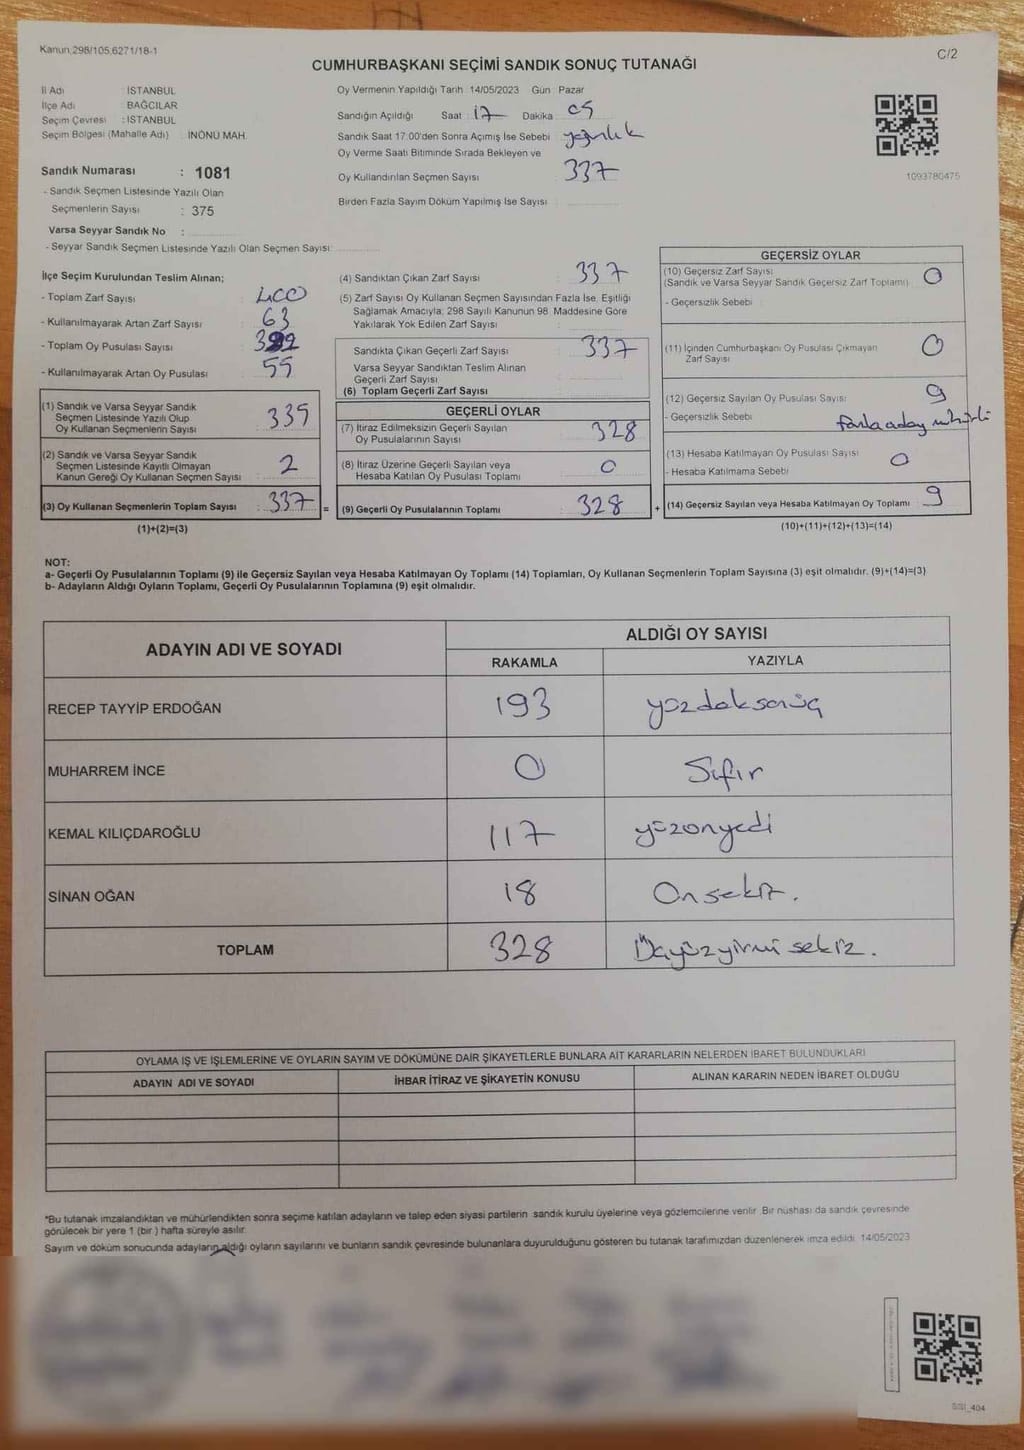 Kanun 298/105,6271/18-1
C/2
CUMHURBAŞKANI SEÇİMİ SANDIK SONUÇ TUTANAĞI
İl Adı : İSTANBUL
İlçe Adı : BAĞCILAR
Seçim Çevresi : İSTANBUL
Seçim Bölgesi (Mahalle Adı) : İNÖNÜ MAH.
Sandık Numarası : 1081
- Sandık Seçmen Listesinde Yazılı Olan
Seçmenlerin Sayısı : 375
Varsa Seyyar Sandık No :
- Seyyar Sandık Seçmen Listesinde Yazılı Olan Seçmen Sayısı:
Oy Vermenin Yapıldığı Tarih 14/05/2023 Gün : Pazar
Sandığın Açıldığı Saat : 17 Dakika : 05
Sandık Saat 17:00'den Sonra Açımış İse Sebebi : yoğunluk
Oy Verme Saati Bitiminde Sırada Bekleyen ve
Oy Kullandırılan Seçmen Sayısı : 337
Birden Fazla Sayım Döküm Yapılmış İse Sayısı :
1093780475
İlçe Seçim Kurulundan Teslim Alınan;
- Toplam Zarf Sayısı : 400
- Kullanılmayarak Artan Zarf Sayısı : 63
- Toplam Oy Pusulası Sayısı : 392
- Kullanılmayarak Artan Oy Pusulası : 55
(1) Sandık ve Varsa Seyyar Sandık
Seçmen Listesinde Yazılı Olup
Oy Kullanan Seçmenlerin Sayısı : 335
(2) Sandık ve Varsa Seyyar Sandık
Seçmen Listesinde Kayıtlı Olmayan
Kanun Gereği Oy Kullanan Seçmen Sayısı : 2
(3) Oy Kullanan Seçmenlerin Toplam Sayısı : 337 =
(1)+(2)=(3)
(4) Sandıktan Çıkan Zarf Sayısı : 337
(5) Zarf Sayısı Oy Kullanan Seçmen Sayısından Fazla İse, Eşitliği
Sağlamak Amacıyla; 298 Sayılı Kanunun 98. Maddesine Göre
Yakılarak Yok Edilen Zarf Sayısı :
Sandıkta Çıkan Geçerli Zarf Sayısı : 337
Varsa Seyyar Sandıktan Teslim Alınan
Geçerli Zarf Sayısı :
(6) Toplam Geçerli Zarf Sayısı :
GEÇERLİ OYLAR
(7) İtiraz Edilmeksizin Geçerli Sayılan
Oy Pusulalarının Sayısı : 328
(8) İtiraz Üzerine Geçerli Sayılan veya
Hesaba Katılan Oy Pusulası Toplamı : 0
(9) Geçerli Oy Pusulalarının Toplamı : 328 +
GEÇERSİZ OYLAR
(10) Geçersiz Zarf Sayısı : 0
(Sandık ve Varsa Seyyar Sandık Geçersiz Zarf Toplamı)
- Geçersizlik Sebebi :
(11) İçinden Cumhurbaşkanı Oy Pusulası Çıkmayan : 0
Zarf Sayısı
(12) Geçersiz Sayılan Oy Pusulası Sayısı : 9
- Geçersizlik Sebebi : fazla aday mühürlü
(13) Hesaba Katılmayan Oy Pusulası Sayısı : 0
- Hesaba Katılmama Sebebi :
(14) Geçersiz Sayılan veya Hesaba Katılmayan Oy Toplamı : 9
(10)+(11)+(12)+(13)=(14)
NOT:
a- Geçerli Oy Pusulalarının Toplamı (9) ile Geçersiz Sayılan veya Hesaba Katılmayan Oy Toplamı (14) Toplamları, Oy Kullanan Seçmenlerin Toplam Sayısına (3) eşit olmalıdır. (9)+(14)=(3)
b- Adayların Aldığı Oyların Toplamı, Geçerli Oy Pusulalarının Toplamına (9) eşit olmalıdır.
ADAYIN ADI VE SOYADI
ALDIĞI OY SAYISI
RAKAMLA YAZIYLA
RECEP TAYYİP ERDOĞAN 193 yüzdoksanüç
MUHARREM İNCE 0 Sıfır
KEMAL KILIÇDAROĞLU 117 yüzonyedi
SİNAN OĞAN 18 Onsekiz.
TOPLAM 328 Üçyüzyirmi sekiz.
OYLAMA İŞ VE İŞLEMLERİNE VE OYLARIN SAYIM VE DÖKÜMÜNE DAİR ŞİKAYETLERLE BUNLARA AİT KARARLARIN NELERDEN İBARET BULUNDUKLARI
ADAYIN ADI VE SOYADI İHBAR İTİRAZ VE ŞİKAYETİN KONUSU ALINAN KARARIN NEDEN İBARET OLDUĞU
*Bu tutanak imzalandıktan ve mühürlendikten sonra seçime katılan adayların ve talep eden siyasi partilerin sandık kurulu üyelerine veya gözlemcilerine verilir. Bir nüshası da sandık çevresinde
görülecek bir yere 1 (bir) hafta süreyle asılır.
Sayım ve döküm sonucunda adayların aldığı oyların sayılarını ve bunların sandık çevresinde bulunanlara duyurulduğunu gösteren bu tutanak tarafımızdan düzenlenerek imza edildi. 14/05/2023
SSI_404